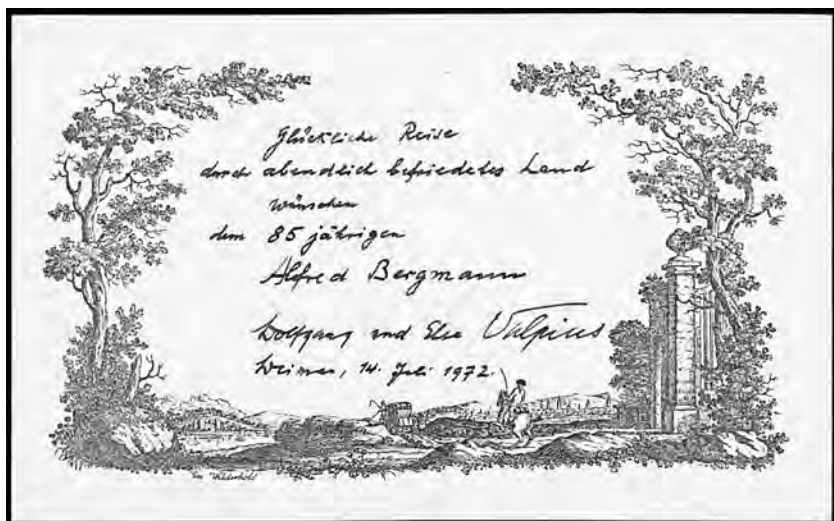 Glückliche Reise
durch abendlich befriedetes Land
wünschen
dem 85 jährigen
Alfred Bergmann
Wolfgang und Else Vulpius
Weimar, 14. Juli 1972.